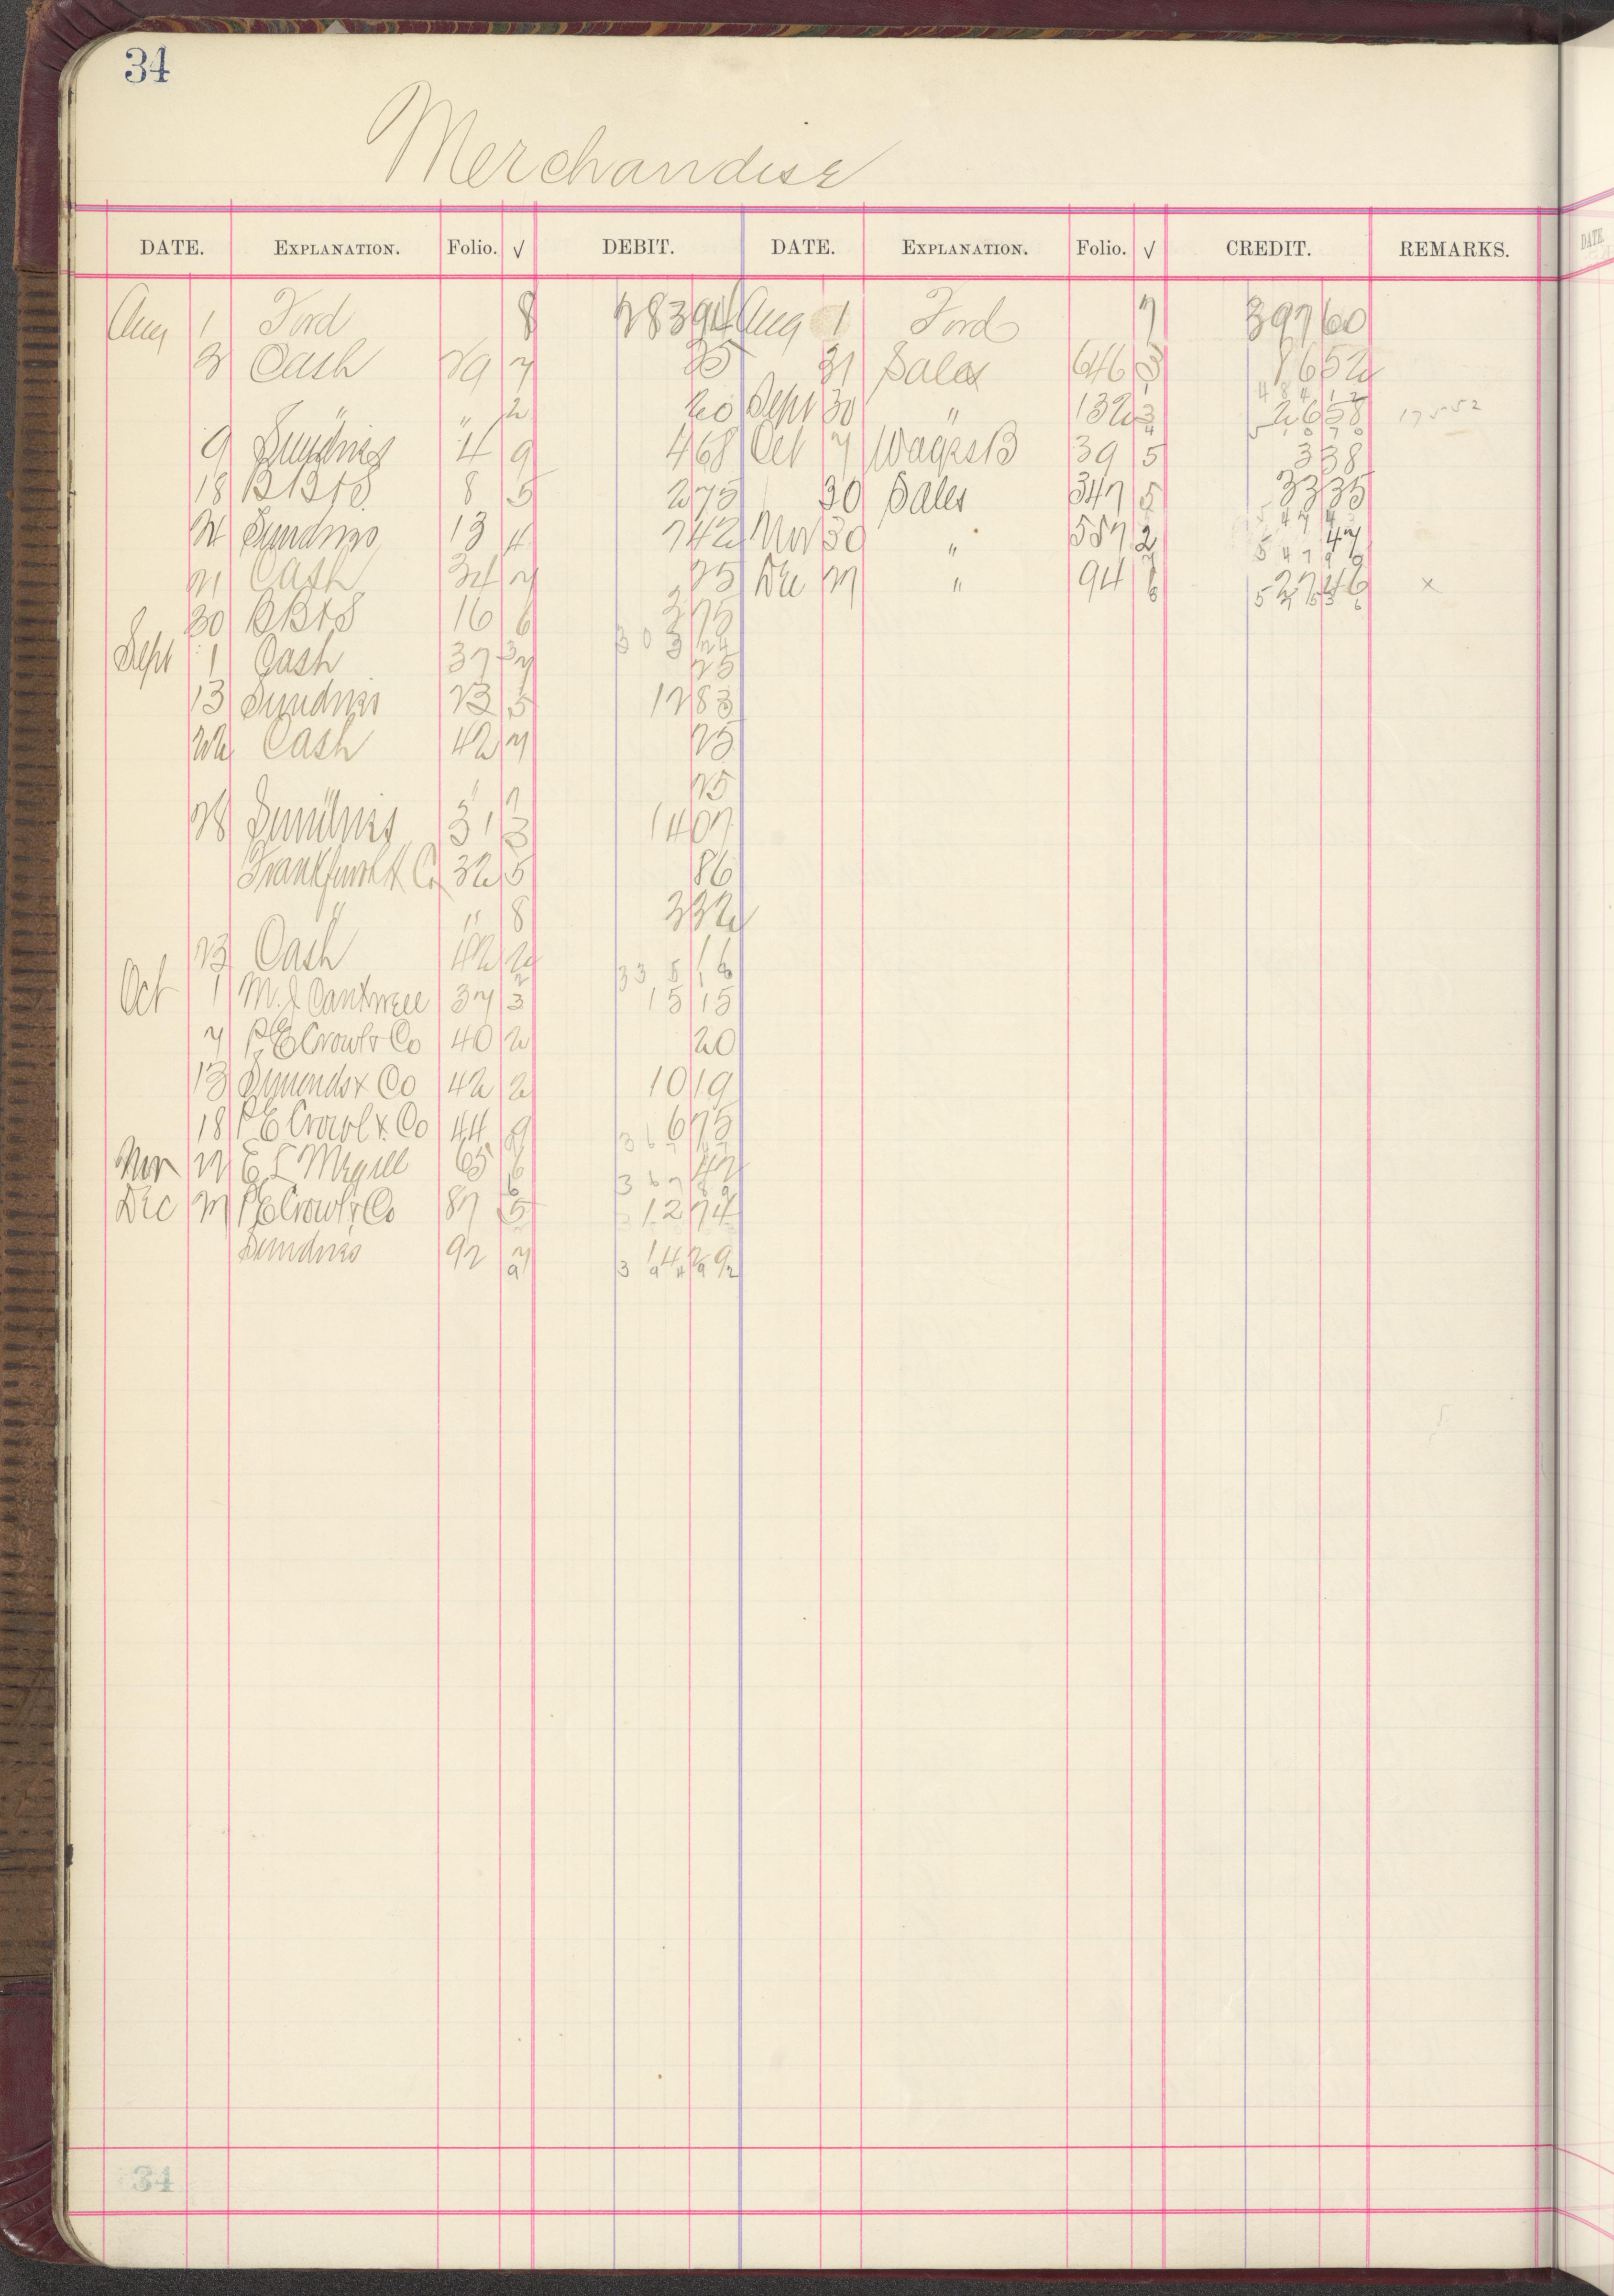 34
Merchandise
DATE. EXPLANATION. Folio. √ DEBIT. DATE. EXPLANATION. Folio. √ CREDIT. REMARKS.
Aug 1 Ford 8 283 94 Aug 1 Ford 7 397 60
2 Cash 29 7 25 31 Sales 646 3 86 52
484 12
" " 2 20 Sept 30 " 132 3 26 58 17552
510 70
9 Sundries 4 9 4 68 Oct 7 Wages B 39 5 3 38
18 BB&S 8 5 2 75 30 Sales 347 5 33 35
547 43
Sundries 13 4 7 42 Nov 30 " 557 2 47
547 90
21 Cash 34 7 25 Dec 27 " 94 6 27 46 x
30 BB&S 16 6 2 75
303 24
Sept 1 Cash 37 7 25
13 Sundries 23 5 12 83
22 Cash 42 7 25
" 7 25
28 Sundries 31 3 14 07
Frankfurth H Co 32 5 86
" " 8 3 32
23 Cash 42 2 16
335 18
Oct 1 M. J. Cantwell 37 3 15 15
7 P E Crowl & Co 40 2 20
13 Simonds & Co 42 2 10 19
18 P E Crowl & Co 44 9 6 75
367 47
Nov E L Megill 65 6 42
367 89
Dec 27 P E Crowl & Co 87 5 12 74
Sundries 92 7 14 29
394 92
34